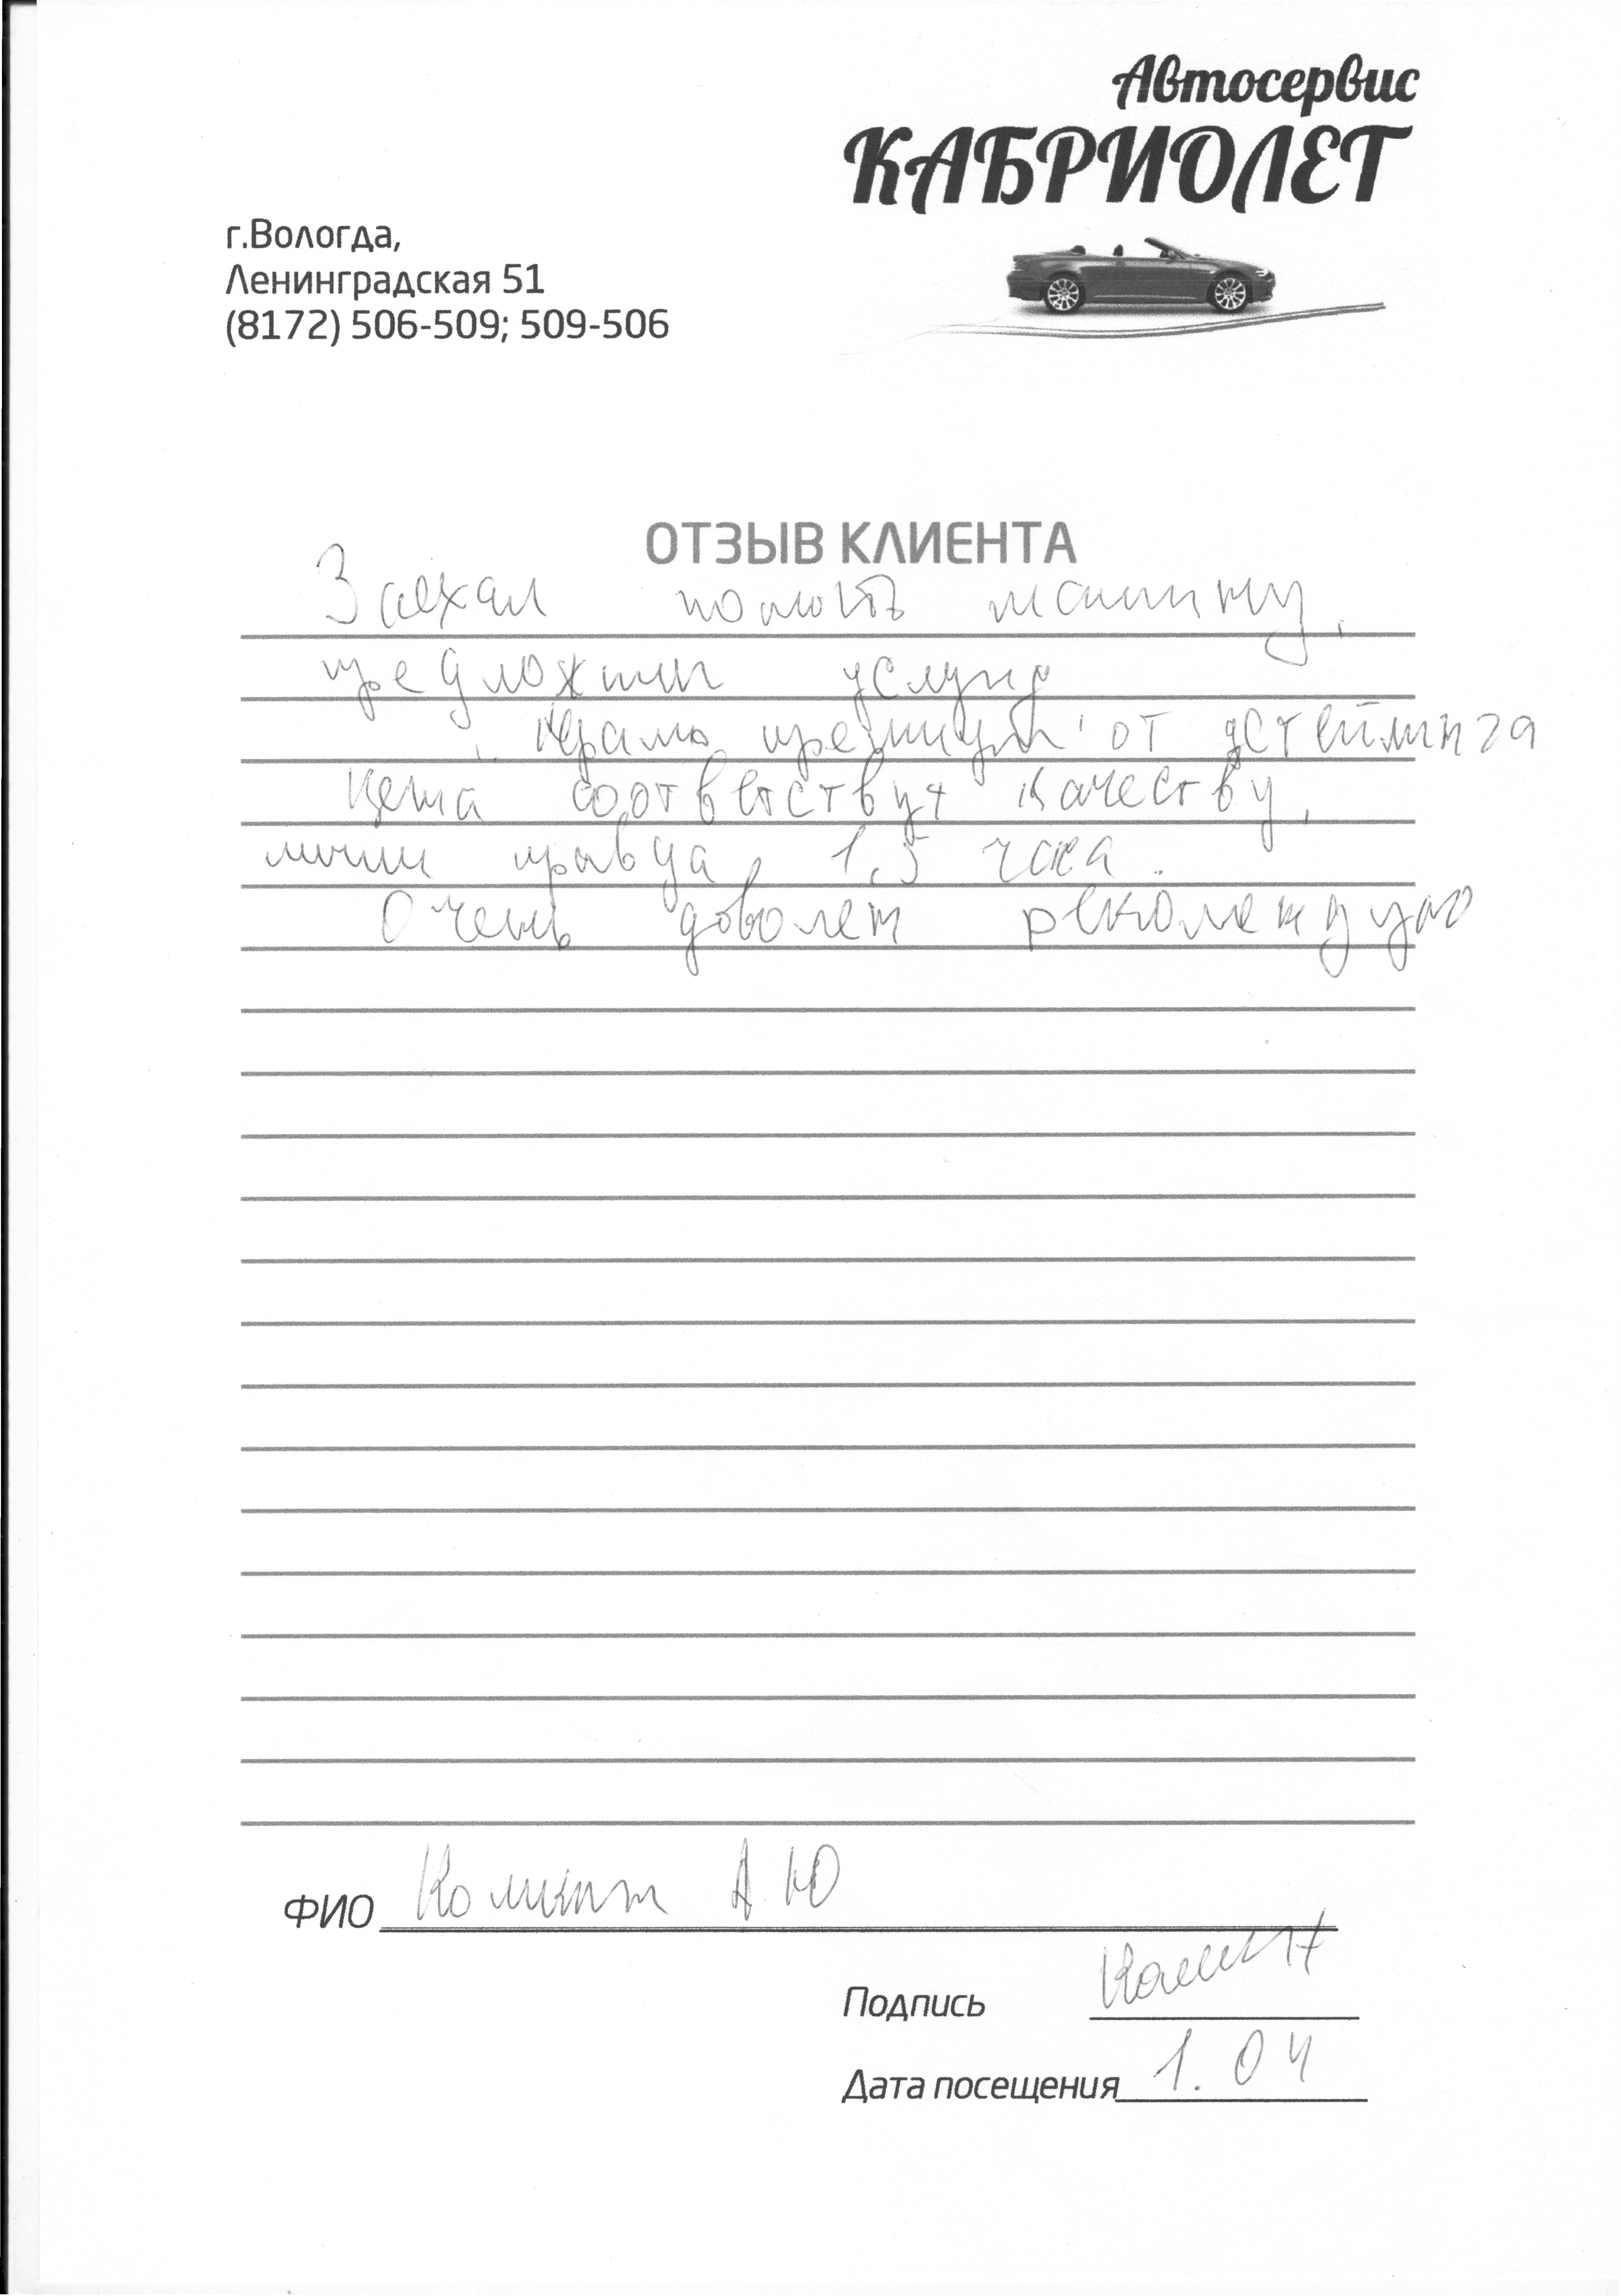 Автосервис
КАБРИОЛЕТ
г.Вологда,
Ленинградская 51
(8172) 506-509; 509-506
ОТЗЫВ КЛИЕНТА
Заехал помыть машину,
предложили услугу
от детейлинга
цена соответствует качеству,
мыли правда 1,5 часа.
Очень доволен рекомендую
ФИО А Ю
Подпись
Дата посещения 1.04